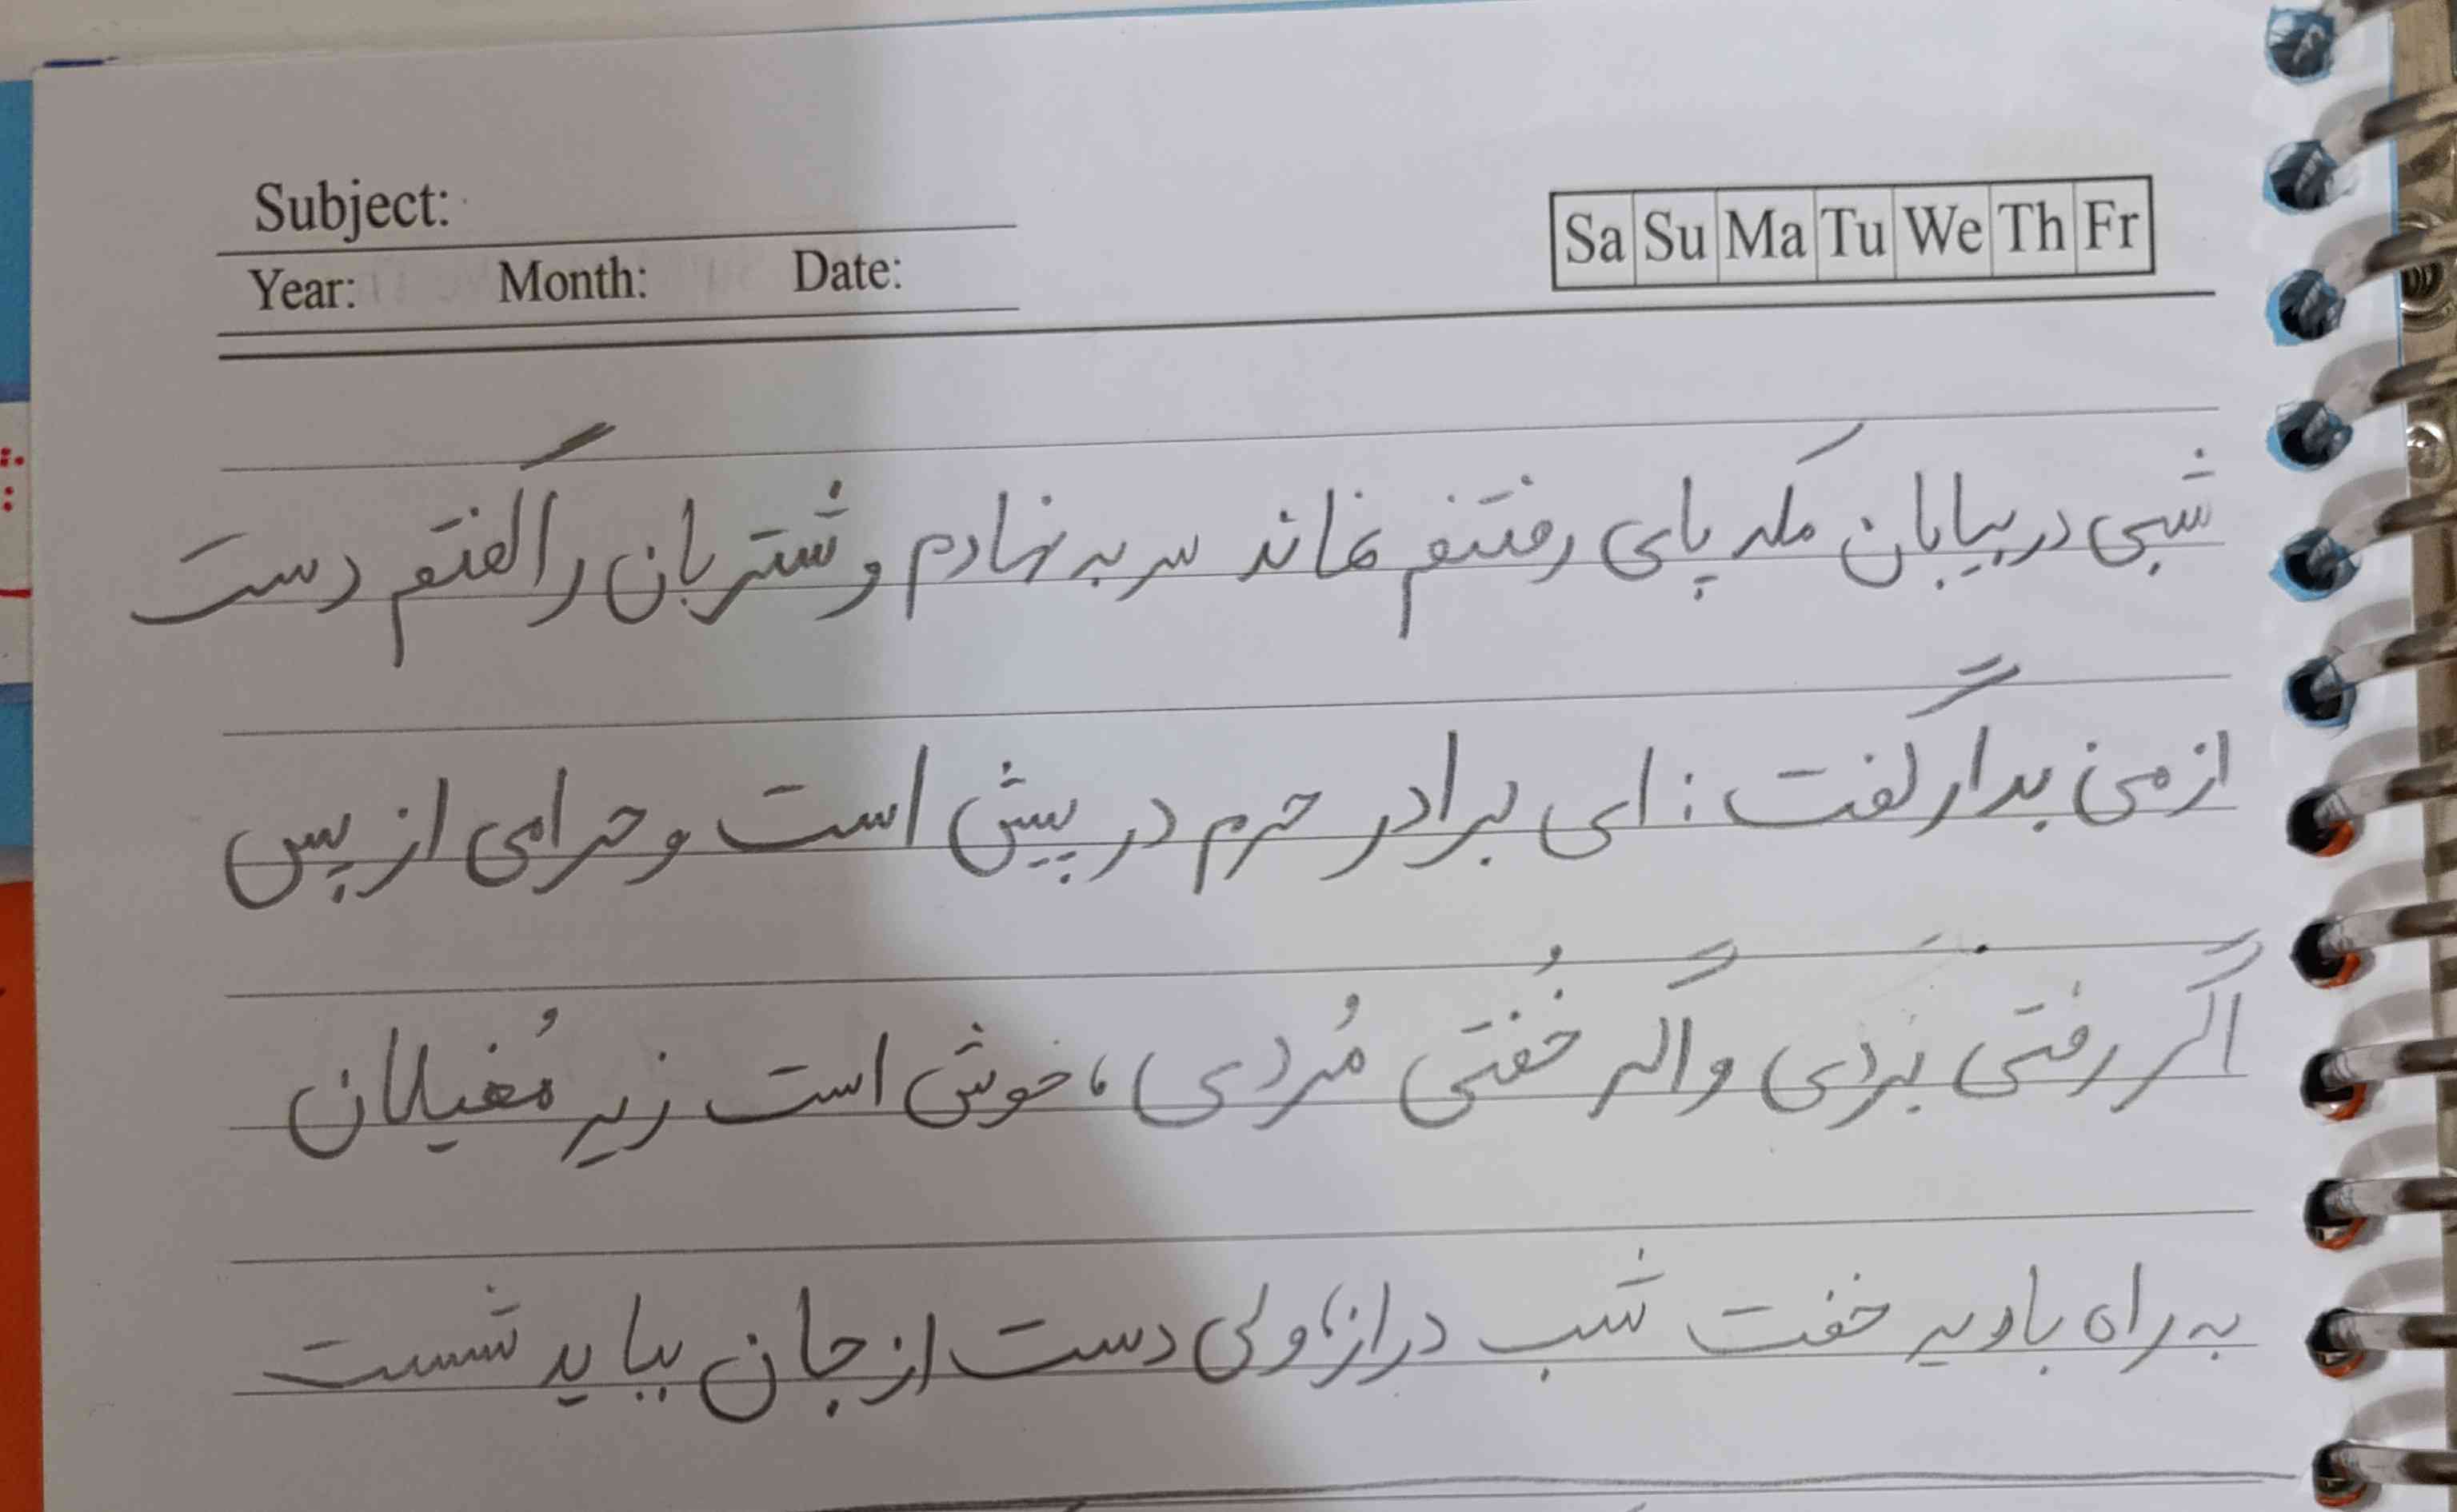 Subject:
Sa Su Ma Tu We Th Fr
Year: Month: Date:
شبی در بیابان مکه پای رفتنم نماند سر به نهادم و شتربان را گفتم دست
از من بدار گفت : ای برادر حرم در پیش است و حرامی از پس
اگر رفتی بَردی و اگر خُفتی مُردی، خوش است زیر مُغیلان
به راه بادیه خفت شب دراز، ولی دست از جان بباید شست